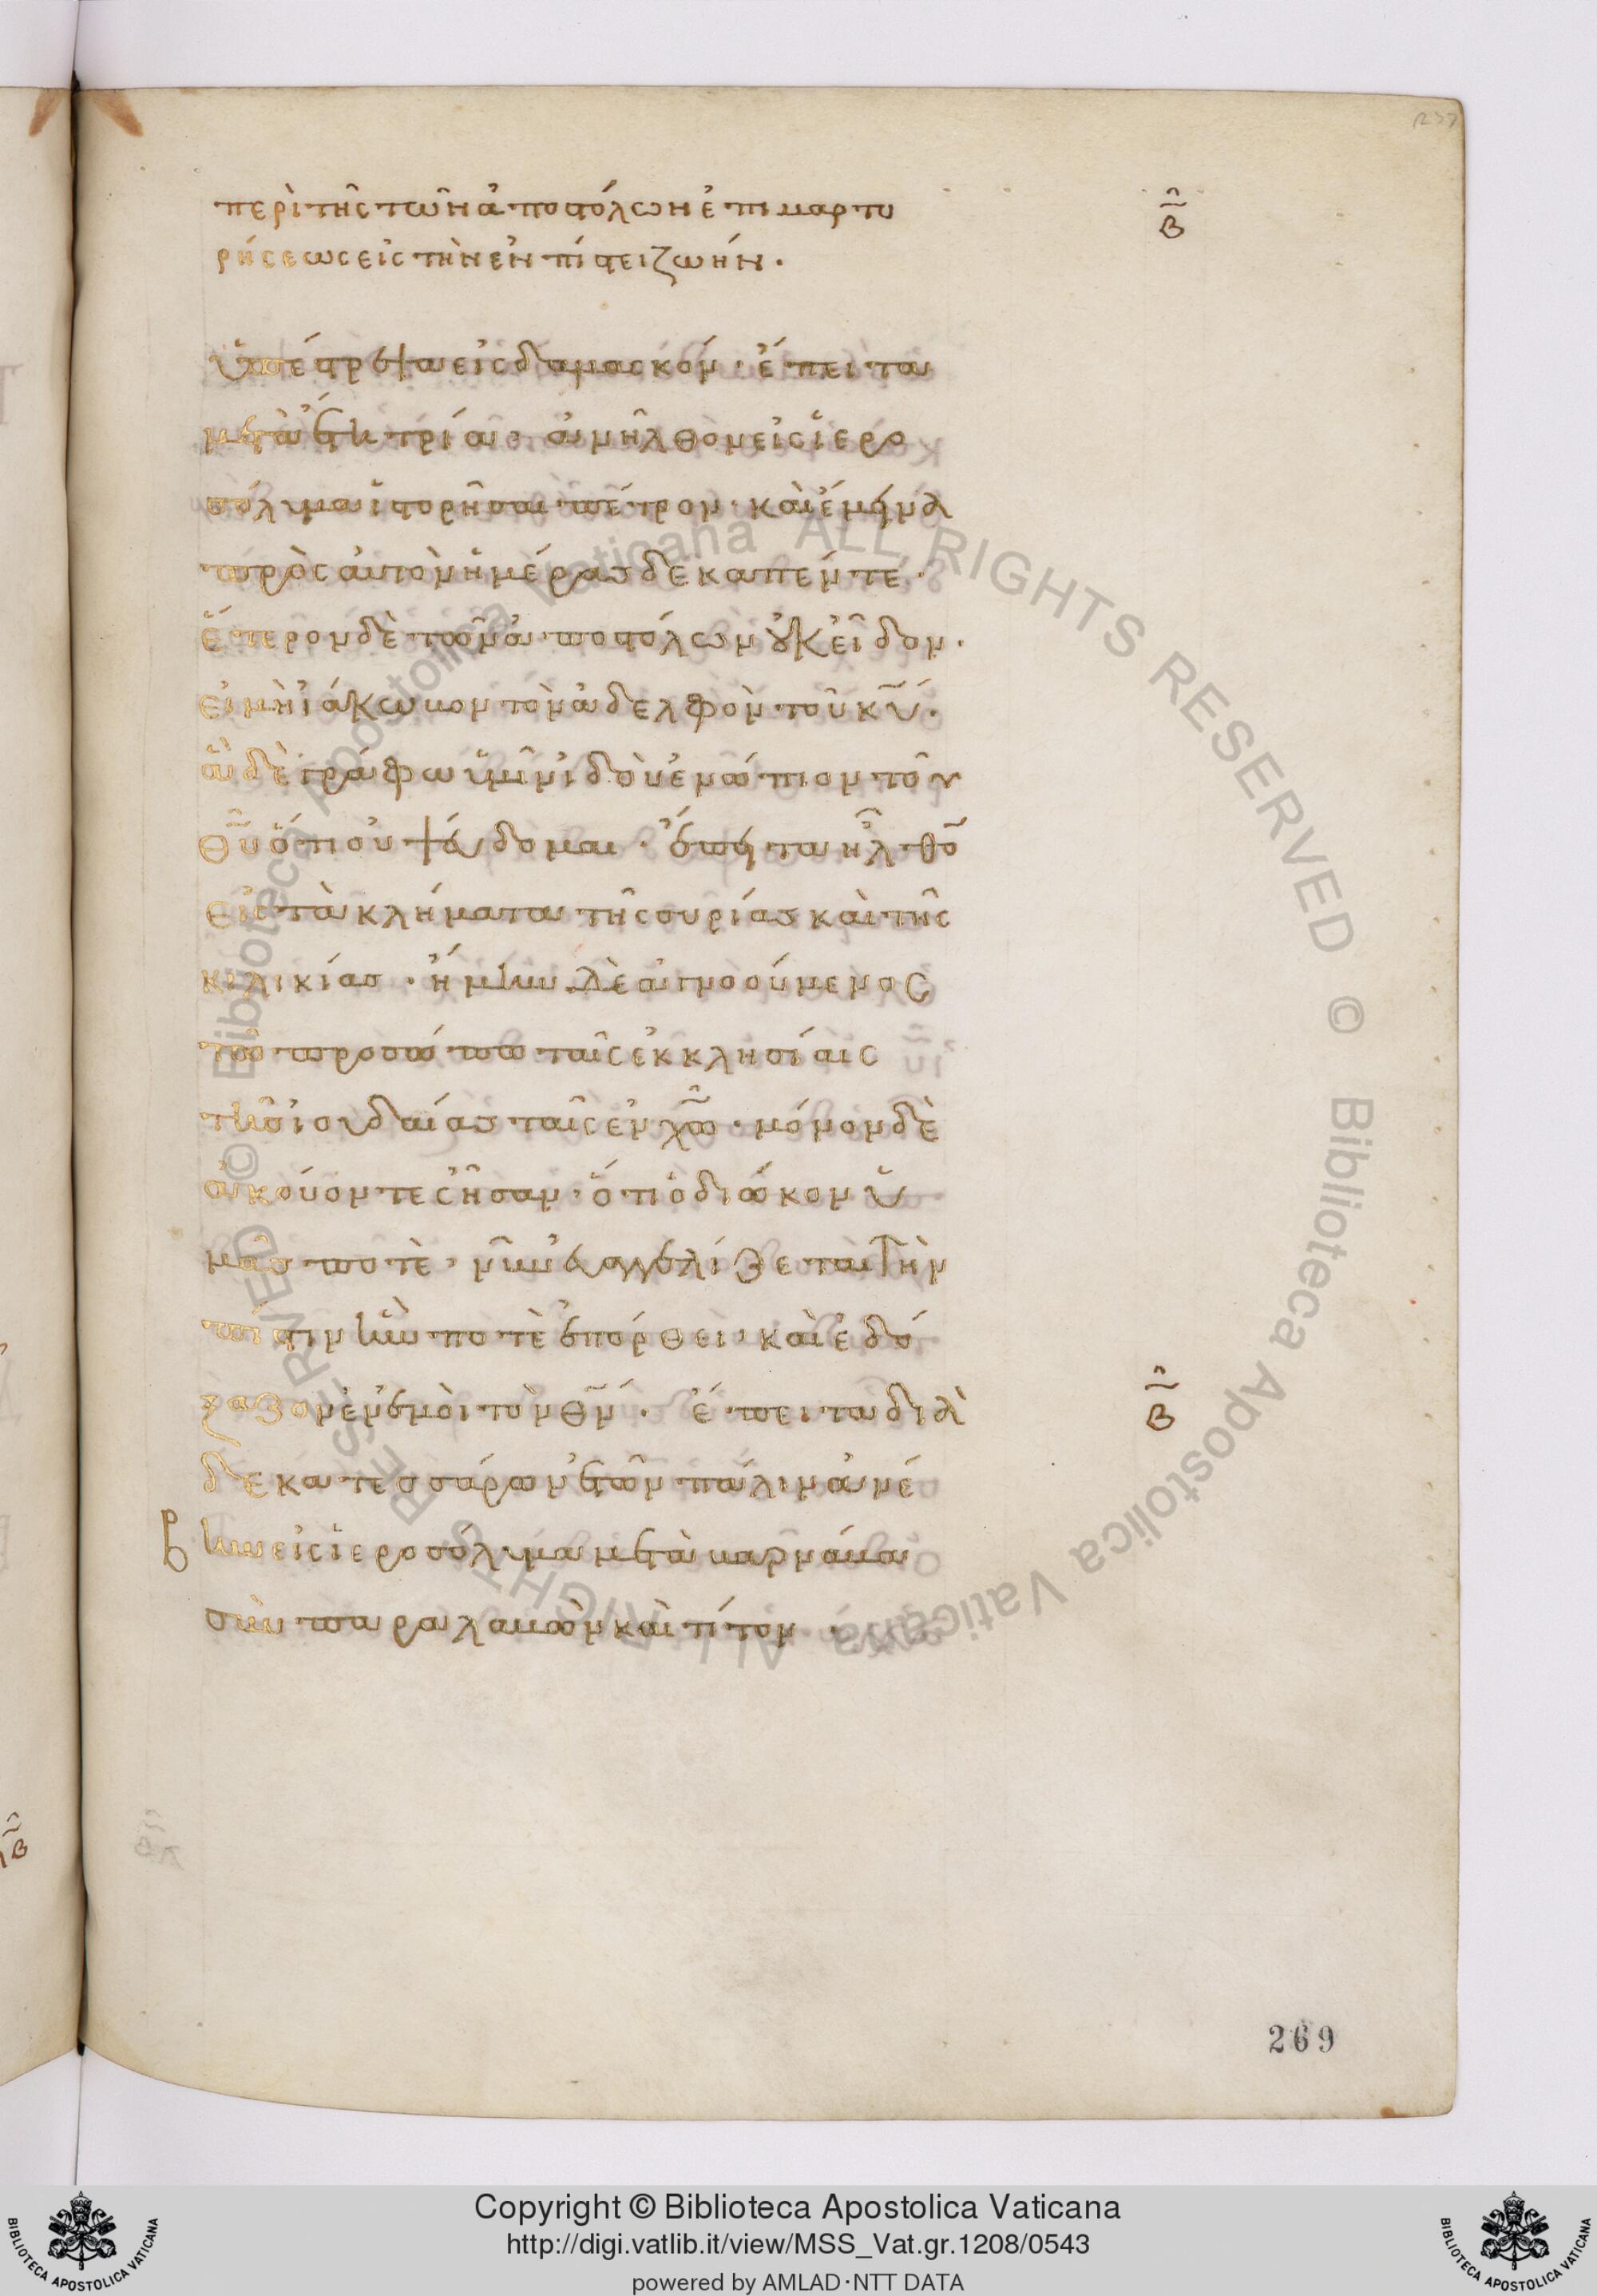 περὶ τῆς τῶν ἀποστόλων ἐπιμαρτυ
ρήσεως εἰς τὴν ἐν πίστει ζωήν.
β
ὑπέστρεψα εἰς δαμασκόν· ἔπειτα
μετὰ ἔτη τρία· ἀνῆλθον εἰς ἱερο
σόλυμα ἱστορῆσαι πέτρον· καὶ ἔμεινα
πρὸς αὐτὸν ἡμέρας δεκαπέντε·
ἕτερον δὲ τῶν ἀποστόλων οὐκ εἶδον·
εἰ μὴ ἰάκωβον τὸν ἀδελφὸν τοῦ κυ·
ἃ δὲ γράφω ὑμῖν ἰδοὺ ἐνώπιον τοῦ
θυ ὅτι οὐ ψεύδομαι· ἔπειτα ἦλθο
εἰς τὰ κλήματα τῆς συρίας καὶ τῆς
κιλικίας· ἤμην δὲ ἀγνοούμενος
τῷ προσώπῳ ταῖς ἐκκλησίαις
τῆς ἰουδαίας ταῖς ἐν χω· μόνον δὲ
ἀκούοντες ἦσαν· ὅτι ὁ διώκων ὑ
μᾶς ποτὲ· νῦν εὐαγγελίζεται τὴν
πίστιν ἣν ποτὲ ἐπόρθει· καὶ ἐδό
ξαζον ἐν ἐμοὶ τὸν θν· ἔπειτα διὰ
β
δεκατεσσάρων ἐτῶν πάλιν ἀνέ
βην εἰς ἱεροσόλυμα μετὰ βαρνάβα
συνπαραλαβὼν καὶ τίτον·
269
Copyright © Biblioteca Apostolica Vaticana
http://digi.vatlib.it/view/MSS_Vat.gr.1208/0543
powered by AMLAD·NTT DATA
BIBLIOTECA APOSTOLICA VATICANA
BIBLIOTECA APOSTOLICA VATICANA
© Biblioteca Apostolica Vaticana ALL RIGHTS RESERVED © Biblioteca Apostolica Vaticana ALL RIGHTS RESERVED